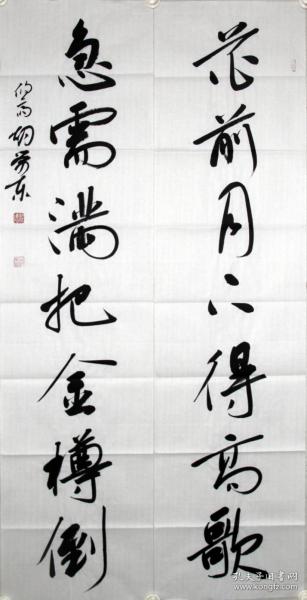 花前月下得高歌
急需满把金樽倒
孔夫子旧书网
www.kongfz.com